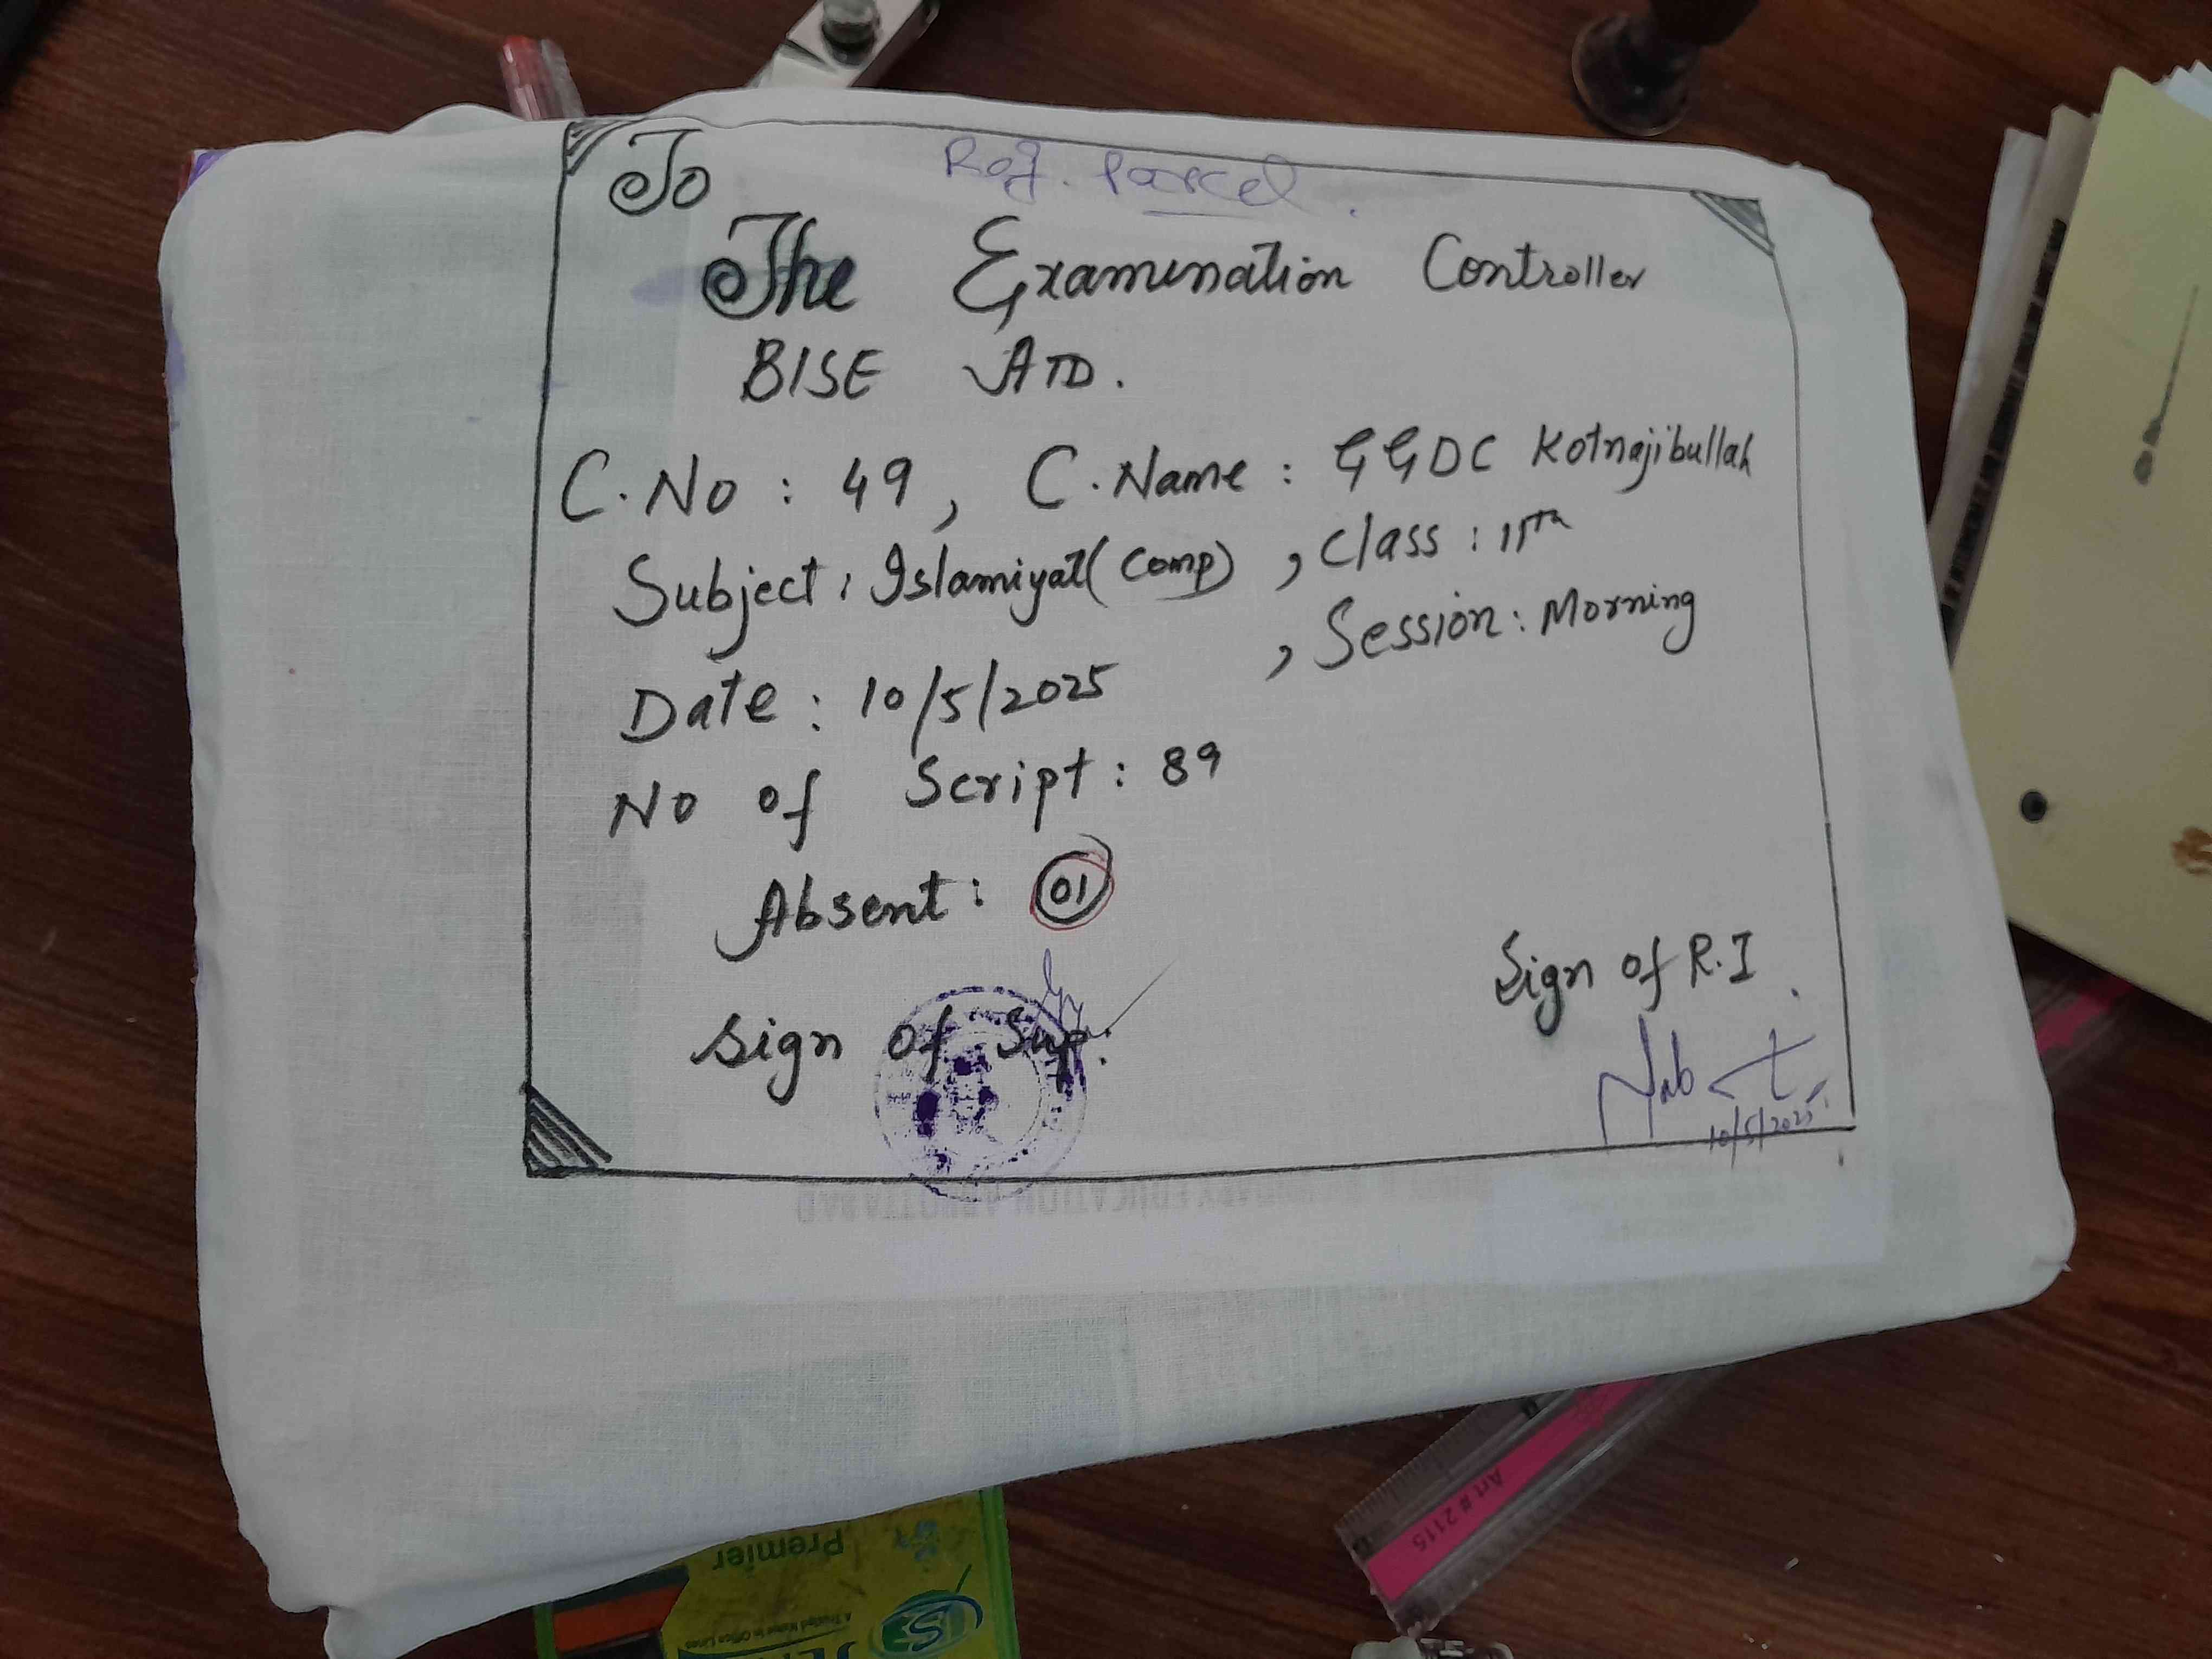 Reg. Parcel.
To
The Examination Controller
BISE ATD.
C.No : 49, C.Name : GGDC Kotnajibullah
Subject : Islamiyat (Comp), Class : 11th
Date : 10/5/2025, Session : Morning
No of Script : 89
Absent : 01
Sign of R.I
Sign of Sup.
10/5/2025
EDUCATION ABBOTTABAD
Art # 2115
Premier